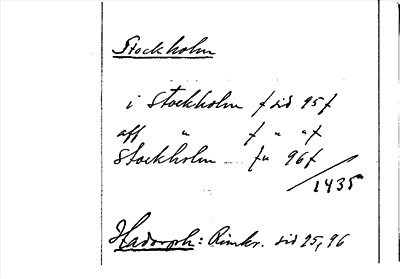 Stockholm
i Stockholm f sid 95 f
aff " f " " f
Stockholm f " 96 f
1435
Hadorph: Rimkr. sid 95, 96